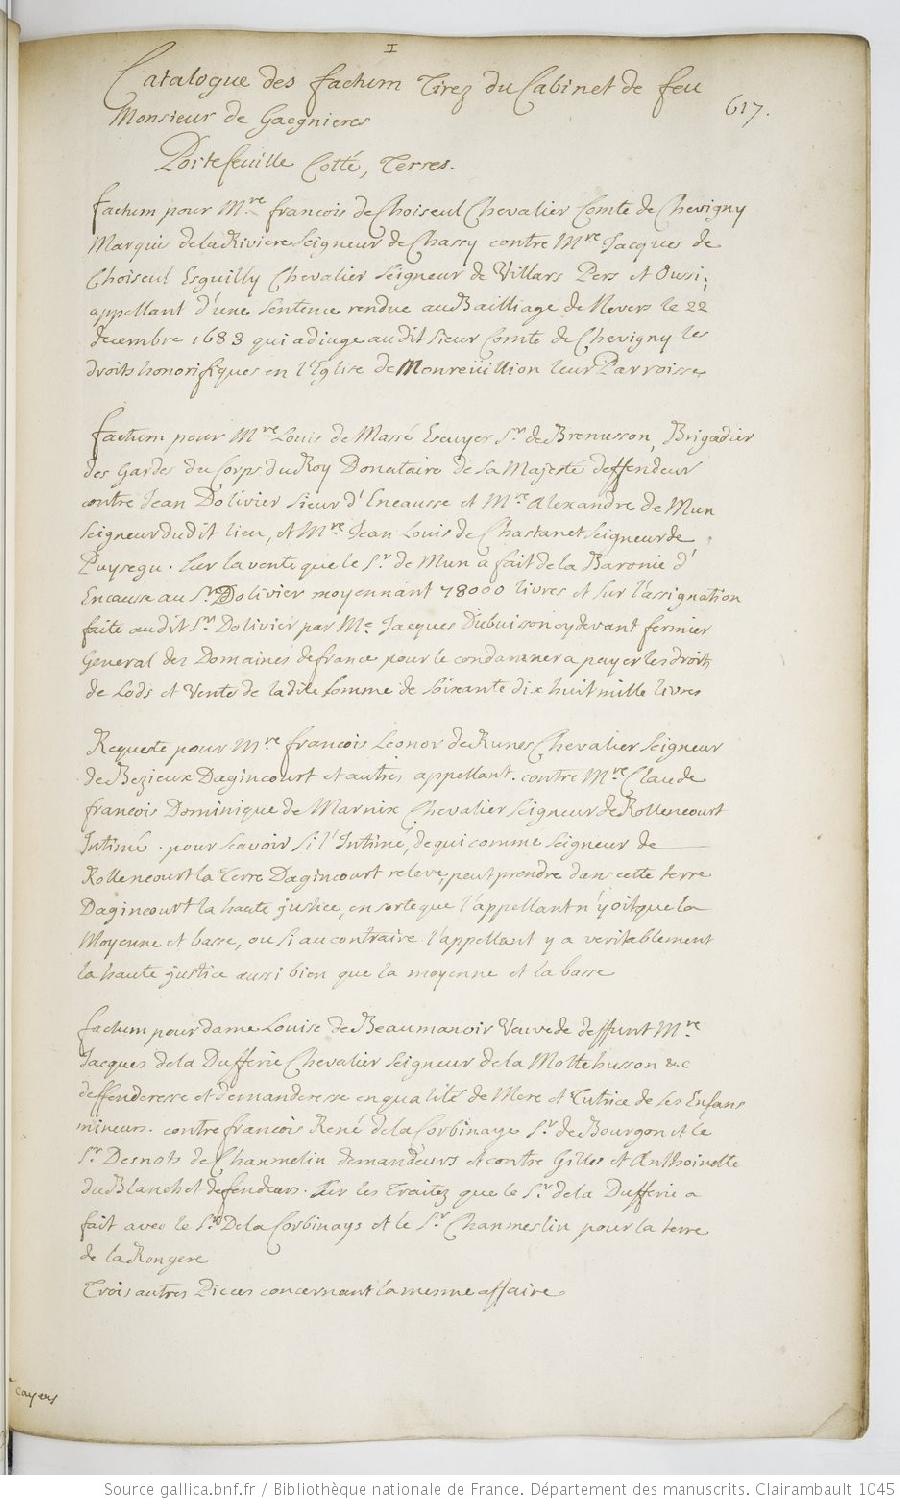 I
Catalogue des factum Tirez du Cabinet de feu
617.
Monsieur de Gaegnieres
Portefeuille Cotté, Terres.
factum pour M.re françois de Choiseul Chevalier Comte de Chevigny
Marquis de la Riviere Seigneur de Chassy contre M.re Jacques de
Choiseul Esguilly Chevalier Seigneur de Villars Pers et Oussi,
appellant d'une sentence rendue au Bailliage de Nevers le 22
decembre 1683 qui adiuge audit sieur Comte de Chevigny les
droits honorifiques en l'Eglise de Monreüillion leur Parroisse
factum pour M.re Louis de Massé Escuyer S.r de Brenusson, Brigadier
des Gardes du Corps du Roy Donataire de sa Majesté deffendeur
contre Jean Dolivier sieur d'Encausse et M.re Alexandre de Mun
seigneur dudit lieu, et M.re Jean Louis de Chastanet seigneur de
Puysegu. sur la vente que le S.r de Mun a fait de la Baronie d'
Encausse au S.r Dolivier moyennant 78000 livres et sur l'assignation
faite audit S.r Dolivier par M.e Jacques Dubuisson cy devant fermier
General des Domaines de france pour le condamner a payer les droits
de Lods et Vente de ladite somme de soixante dix huit mille livres
Requeste pour M.re françois Leonor de Runes Chevalier seigneur
de Bezieux Dagincourt et autres appellant. contre M.re Claude
françois Dominique de Marnix Chevalier seigneur de Rollencourt
Intimé. pour scavoir si l'Intimé, de qui comme seigneur de
Rollencourt la Terre Dagincourt releve, peut prendre dans cette terre
Dagincourt la haute justice, en sorte que l'appellant n'y oit que la
Moyenne et basse, ou si au contraire l'appellant y a veritablement
la haute justice aussi bien que la moyenne et la basse
factum pour dame Louise de Beaumanoir Veuve de deffunt M.re
Jacques de la Dufferie Chevalier seigneur de la Mottehusson &c
deffenderesse et demanderesse en qualité de Mere et Tutrice de ses Enfans
mineurs. contre françois René de la Corbinaye S.r de Bourgon et le
S.r Desnots de Chanmelin demandeurs et contre Gilles et Anthoinette
du Blanchet defendeurs. sur les Traitez que le S.r de la Dufferie a
fait avec le S.r De la Corbinays et le S.r Chanmeslin pour la terre
de la Rongere
Trois autres Pieces concernant la mesme affaire
cayers
Source gallica.bnf.fr / Bibliothèque nationale de France. Département des manuscrits. Clairambault 1045